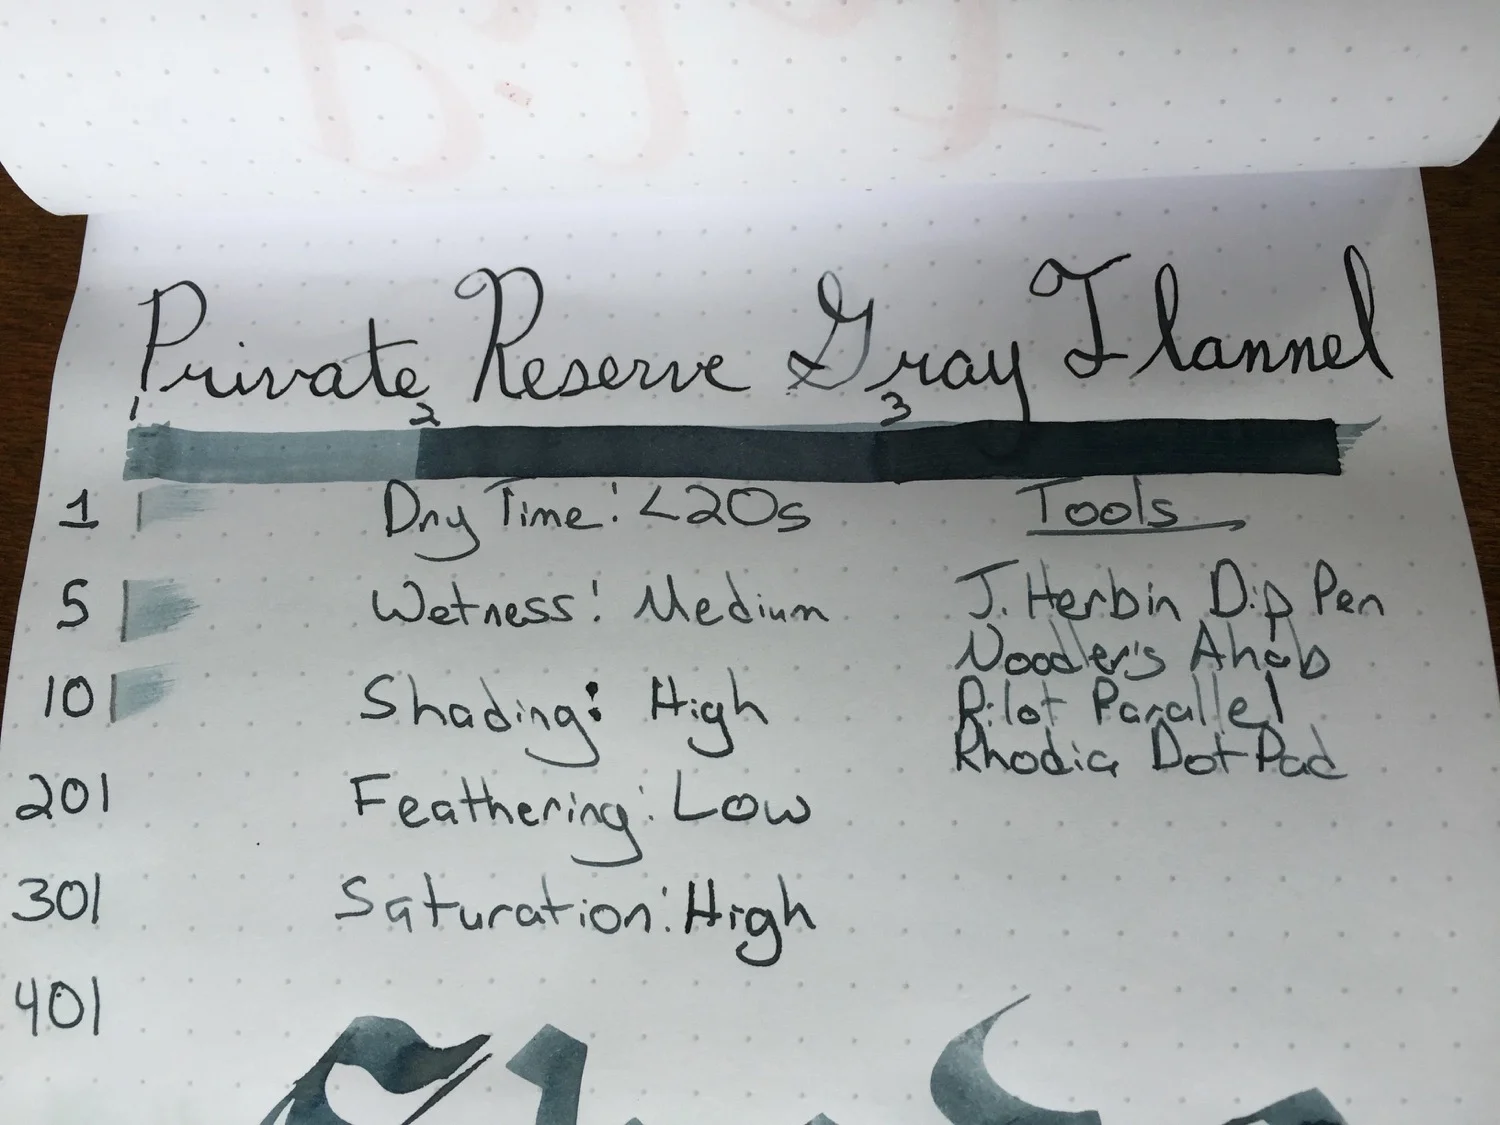 Private Reserve Gray Flannel
1 2 3
1 Dry Time: <20s
Tools
5 Wetness: Medium
J. Herbin Dip Pen
Nooder's Ahab
10 Shading: High
Pilot Parallel
Rhodia Dot Pad
20 Feathering: Low
30 Saturation: High
40